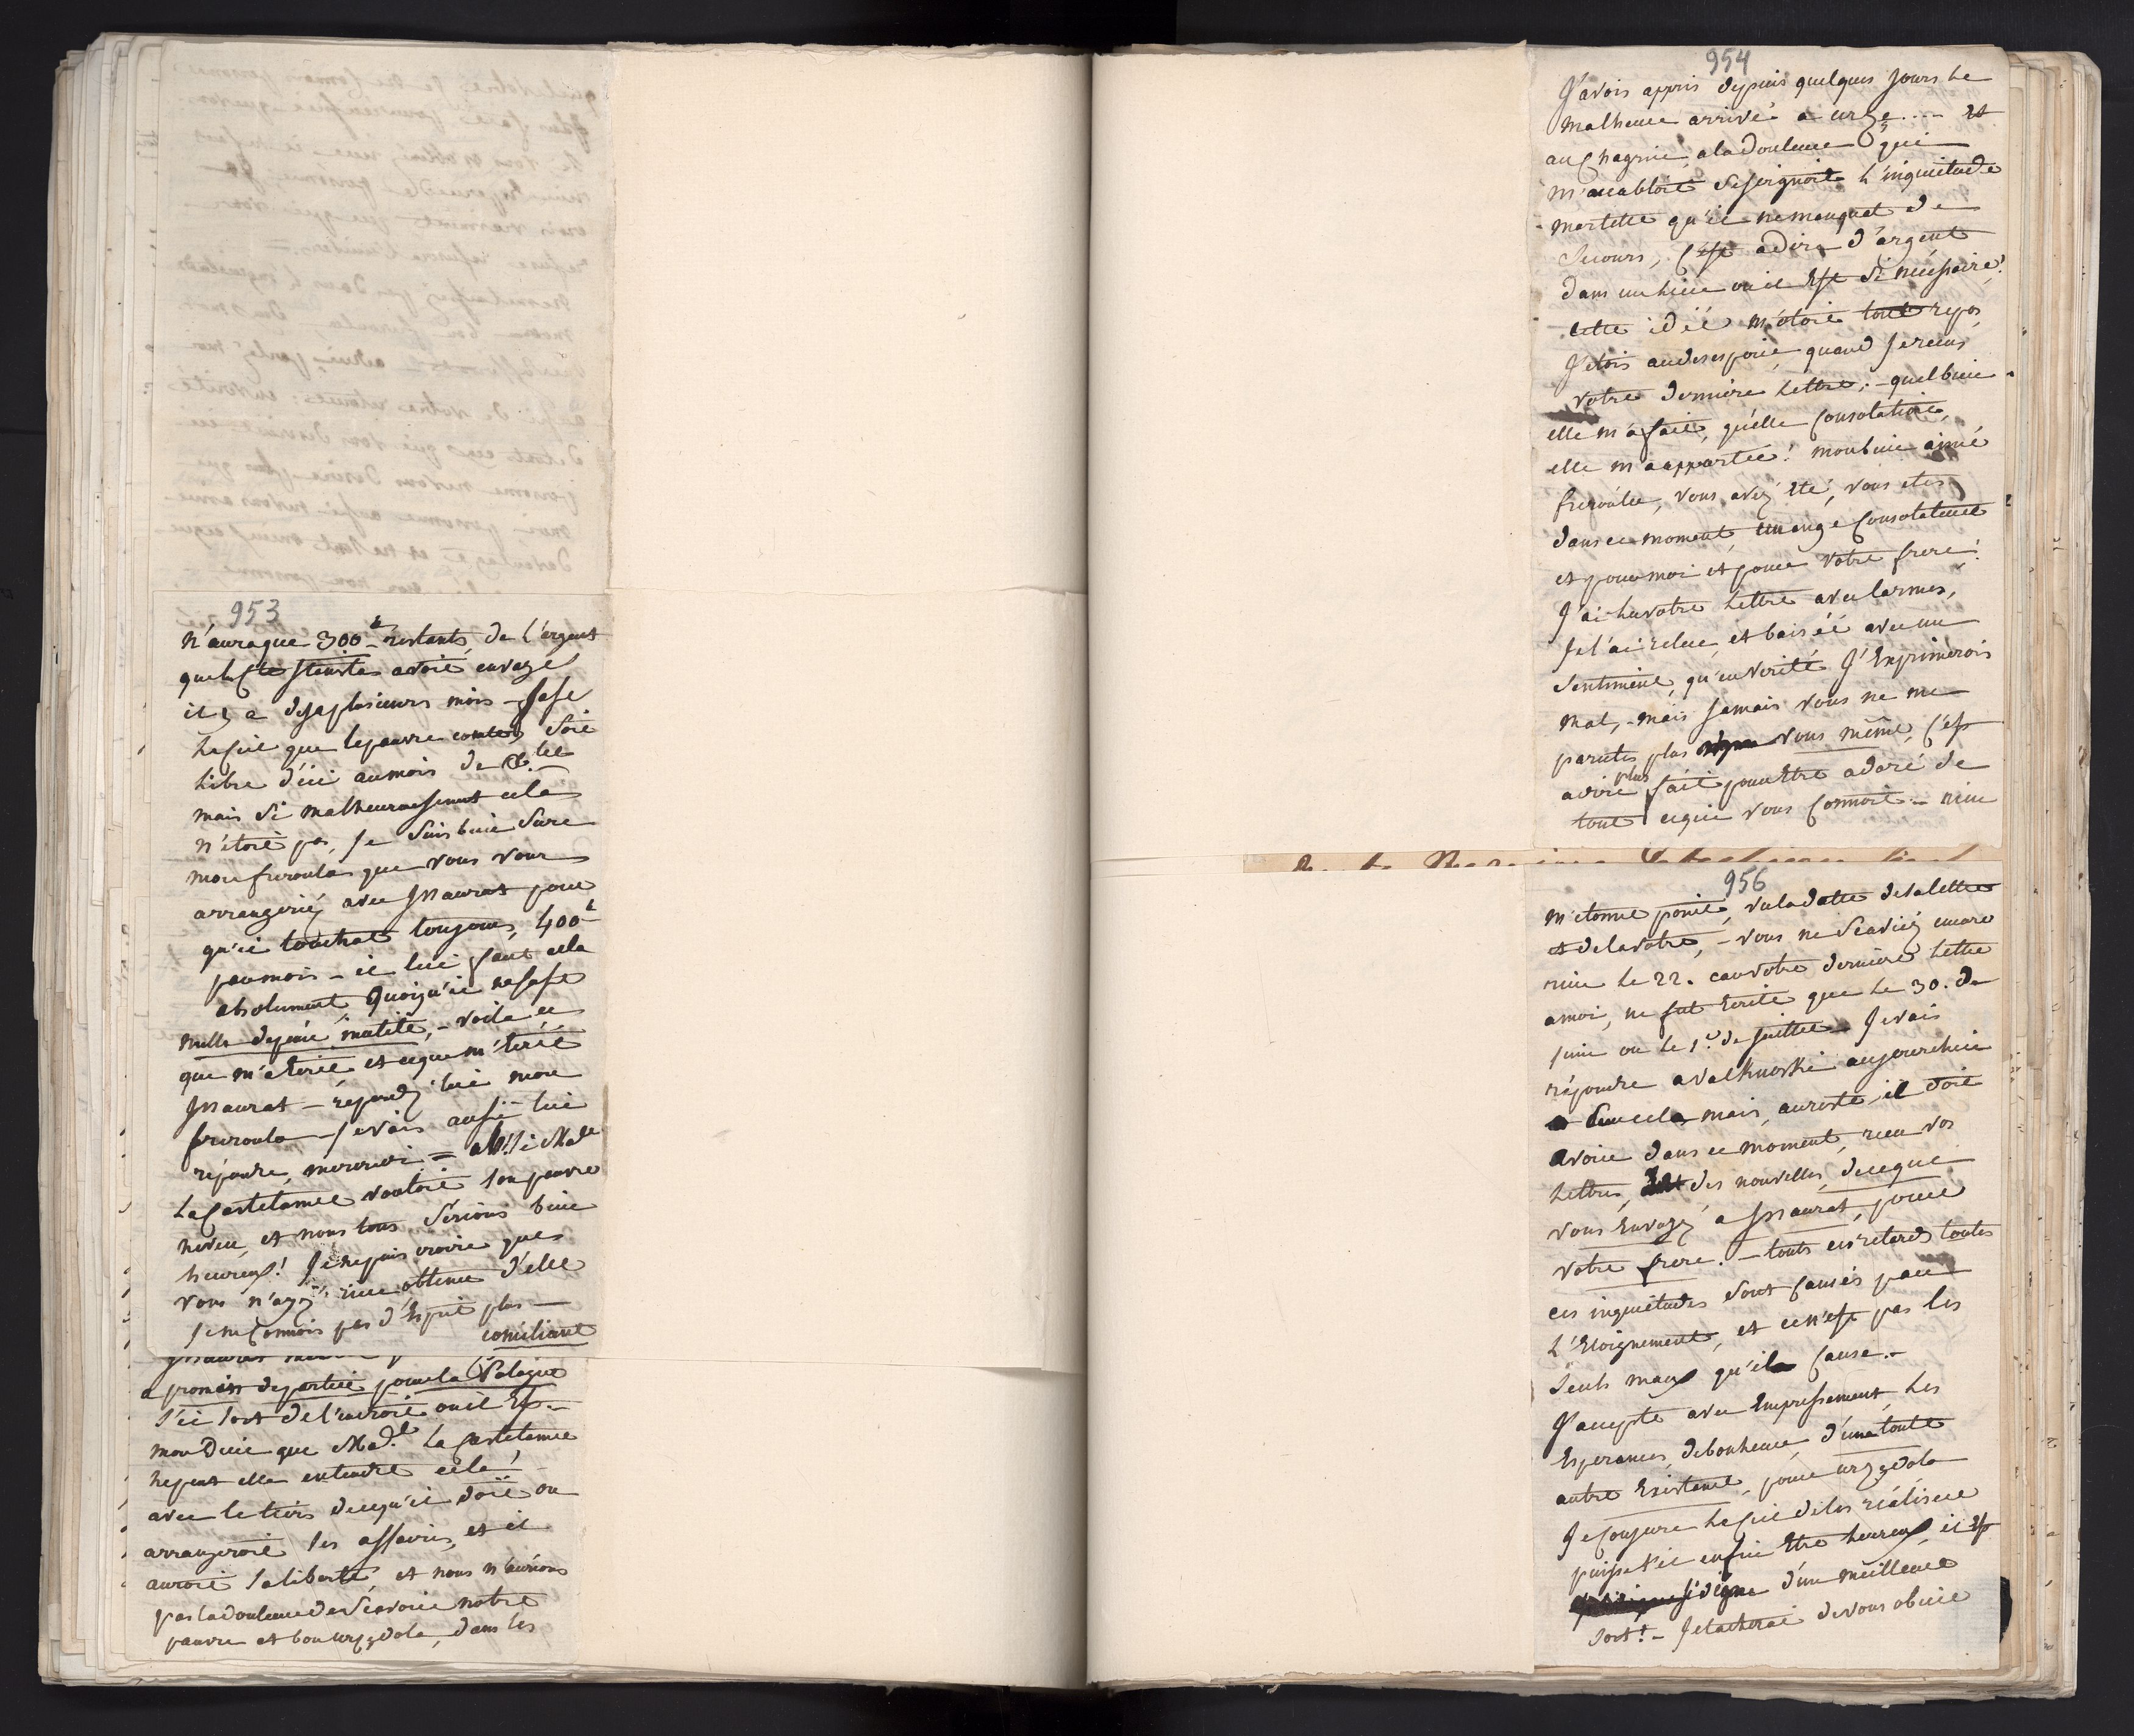 953
n'auraque 300# restants, de l'argent
que le Cte avoit envoyé
il y a deja plusieurs mois - fasse
le ciel que le pauvre comte soit
libre d'ici au mois de 8.bre
mais si malheureusement cela
n'étoit pas, je suis bien sure
mon freroula que vous vous
arrangeriéz avec Maurat pour
qu'il touchat toujours, 400#
par mois - il lui faut cela
absolument, quoiqu'il ne fasse
nulle depense inutile, - voila ce
que m'a écrit et ce que m'écrit
Maurat - repondéz lui mon
freroula - je vais aussi lui
répondre, mercredi = ah! si Made
la Castelanne vouloit son pauvre
neveu, et nous tous serions bien
heureux! je ne puis croire que
vous n'ayéz rien obtenu d'elle
je ne connois pas d'esprit plus -
conciliant
a promis de partir pour la Pologne
s'il sort de l'endroit où il est. -
mon Dieu que Made la Castelanne
ne peut elle entendre cela!
avec le tiers de ce qu'il doit on
arrangeroit ses affaires, et il
auroit sa liberté, et nous n'aurions
pas la douleur de scavoir notre
pauvre et bon urzedola, dans les
954
J'avois appris depuis quelques jours le
malheur arrivé à urze.... et
au chagrin, a la douleur qui
m'accabloit se joignoit l'inquietude
mortelle qu'il ne manquat de
secours, c'est a dire d'argent
dans un lieu où il est si nécessaire!
cette idée m'ôtoit tout repos
j'étois au desespoir, quand je recus
votre derniere lettre, - quel bien
elle m'a fait, quelle consolation,
elle m'a apportée! mon bien aimé
freroula, vous avéz été, vous etes
dans ce moment, un ange consolateur
et pour moi et pour votre frere!
j'ai lu votre lettre avec larmes,
je l'ai relue, et baisée avec un
sentiment, qu'en verité j'exprimerois
mal, - mais jamais vous ne me
parutes plus vous même, c'est
a dire plus fait pour être adoré de
tout ce qui vous connoit - rien
956
m'etonne point, vu la datte de sa lettre
et de la votre, - vous ne scaviéz encore
rien le 22. car votre derniere lettre
a moi, ne fut écrite que le 30. de
juin ou le 1er de juillet - je vais
répondre a aujourd'hui
sur cela mais, au reste, il doit
avoir dans ce moment, recu vos
lettres, des nouvelles, de ce que
vous envoyéz a Maurat, pour
votre frere. - touts ces retards toutes
ces inquiétudes sont causés par
l'éloignement, et ce n'est pas les
seuls maux qu'il cause. -
J'accepte avec empressement, les
esperances, de bonheur, d'une toute
autre existence, pour urzedola
je conjure le ciel de les réaliser
puisse t'il enfin être heureux, il est
si digne d'un meilleur
sort! - je tacherai de vous obeir